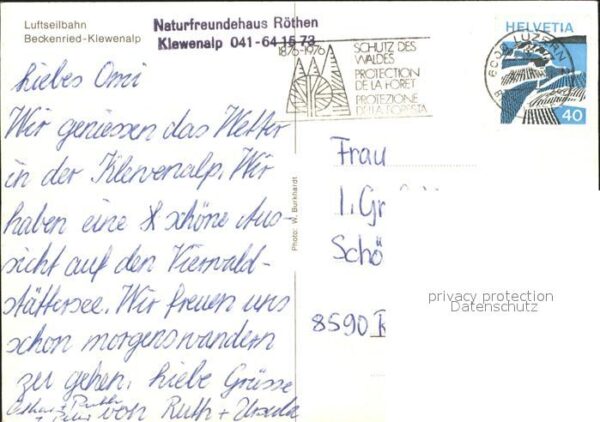 Luftseilbahn
Beckenried-Klewenalp
Naturfreundehaus Röthen
Klewenalp 041-64 15 73
1876-1976
SCHUTZ DES
WALDES
PROTECTION
DE LA FORET
PROTEZIONE
DELLA FORESTA
HELVETIA
40
LUZERN
Liebes Omi
Wir geniessen das Wetter
in der Klewenalp. Wir
haben eine schöne Aus-
sicht auf den Vierwald-
stättersee. Wir freuen uns
schon morgens wandern
zu gehen. Liebe Grüsse
von Ruth + Ursula
Photo: W. Burkhardt
Frau
I. Gr
Schö
8590
privacy protection
Datenschutz